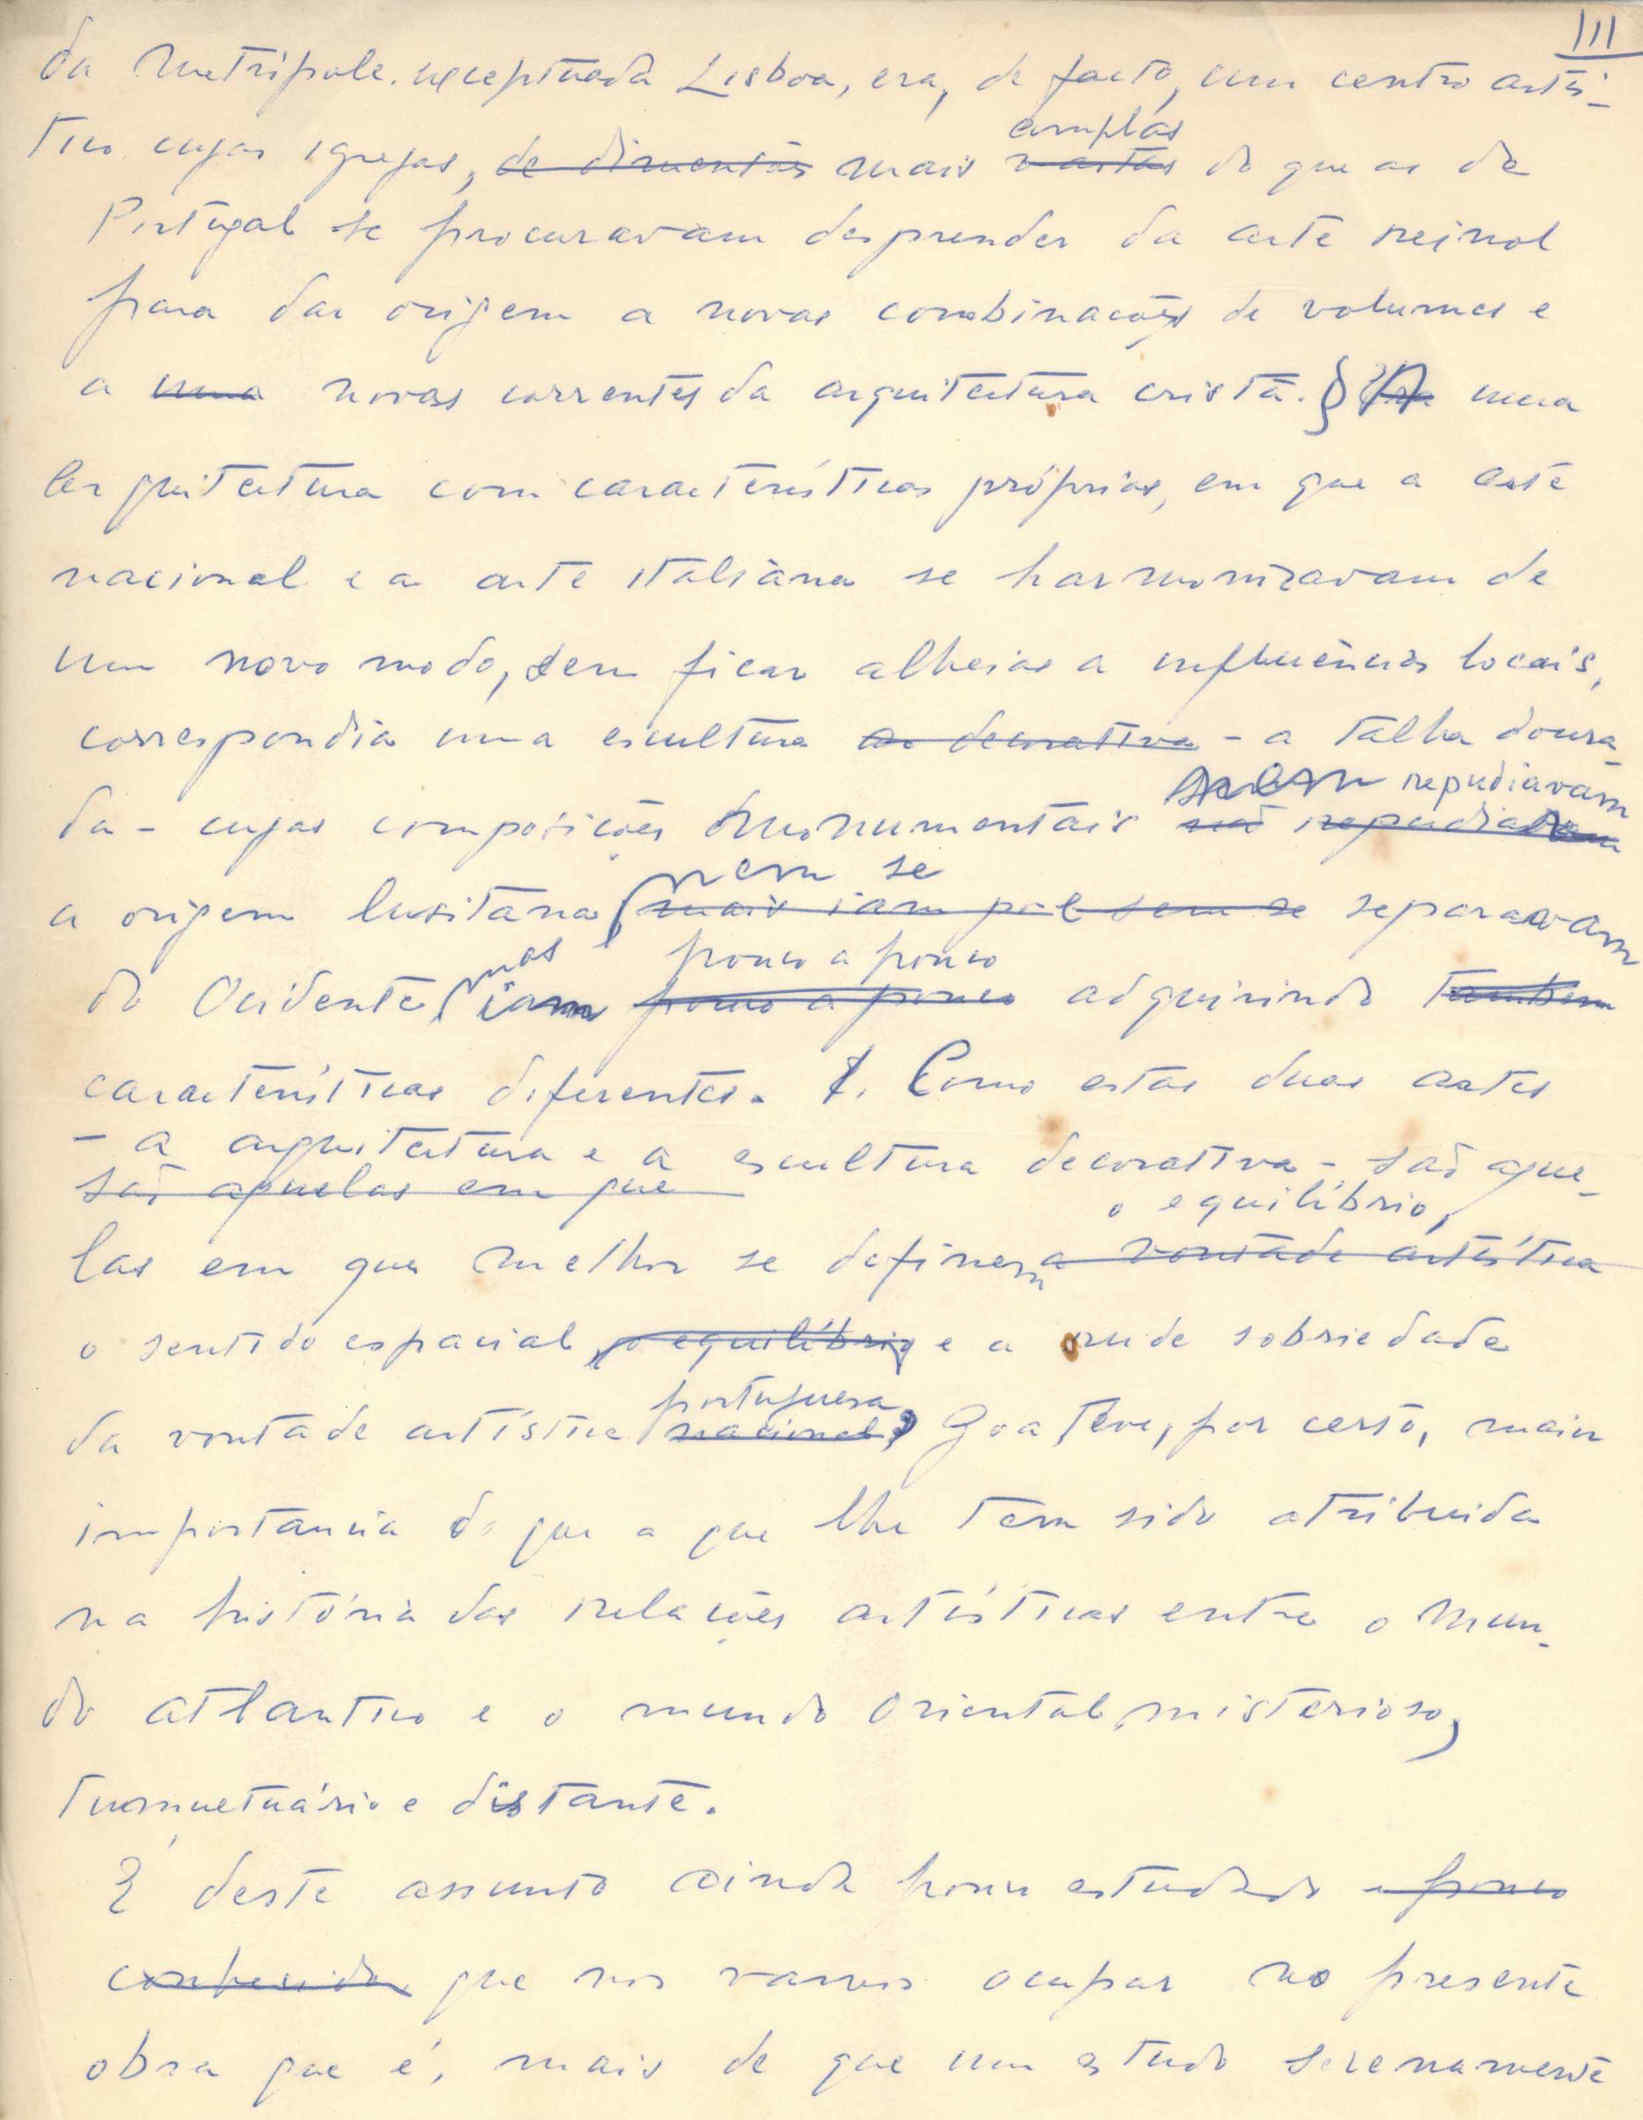 III
da Metrópole, exceptuada Lisboa, era, de facto, um centro artís-
tico cujas igrejas, de dimensões mais vastas amplas do que as de
Portugal se procuravam desprender da arte reinol
para dar origem a novas combinações de volumes e
a uma novas correntes da arquitectura cristã. § A uma
arquitectura com características próprias, em que a arte
nacional e a arte italiana se harmonizavam de
um novo modo, sem ficar alheias a influências locais,
correspondia uma escultura decorativa - a talha doura-
da - cujas composições monumentais não repudiavam nem repudiavam
a origem lusitana, mais iam pol sem se nem se separavam
do Ocidente, mas iam pouco a pouco pouco a pouco adquirindo também
características diferentes. Como estas duas artes
- a arquitectura e a escultura decorativa - são aque-
são aquelas em que
las em que melhor se definem a vontade artística o equilíbrio,
o sentido espacial, o equilíbrio e a rude sobriedade
da vontade artística nacional portuguesa, Goa teve, por certo, maior
importancia do que a que lhe tem sido atribuida
na história das relações artísticas entre o Mun-
do atlantico e o mundo Oriental, misterioso,
tumultuário e distante.
É deste assunto ainda pouco estudado e pouco
conhecido que nos vamos ocupar no presente
obra que é, mais de que um estudo serenamente